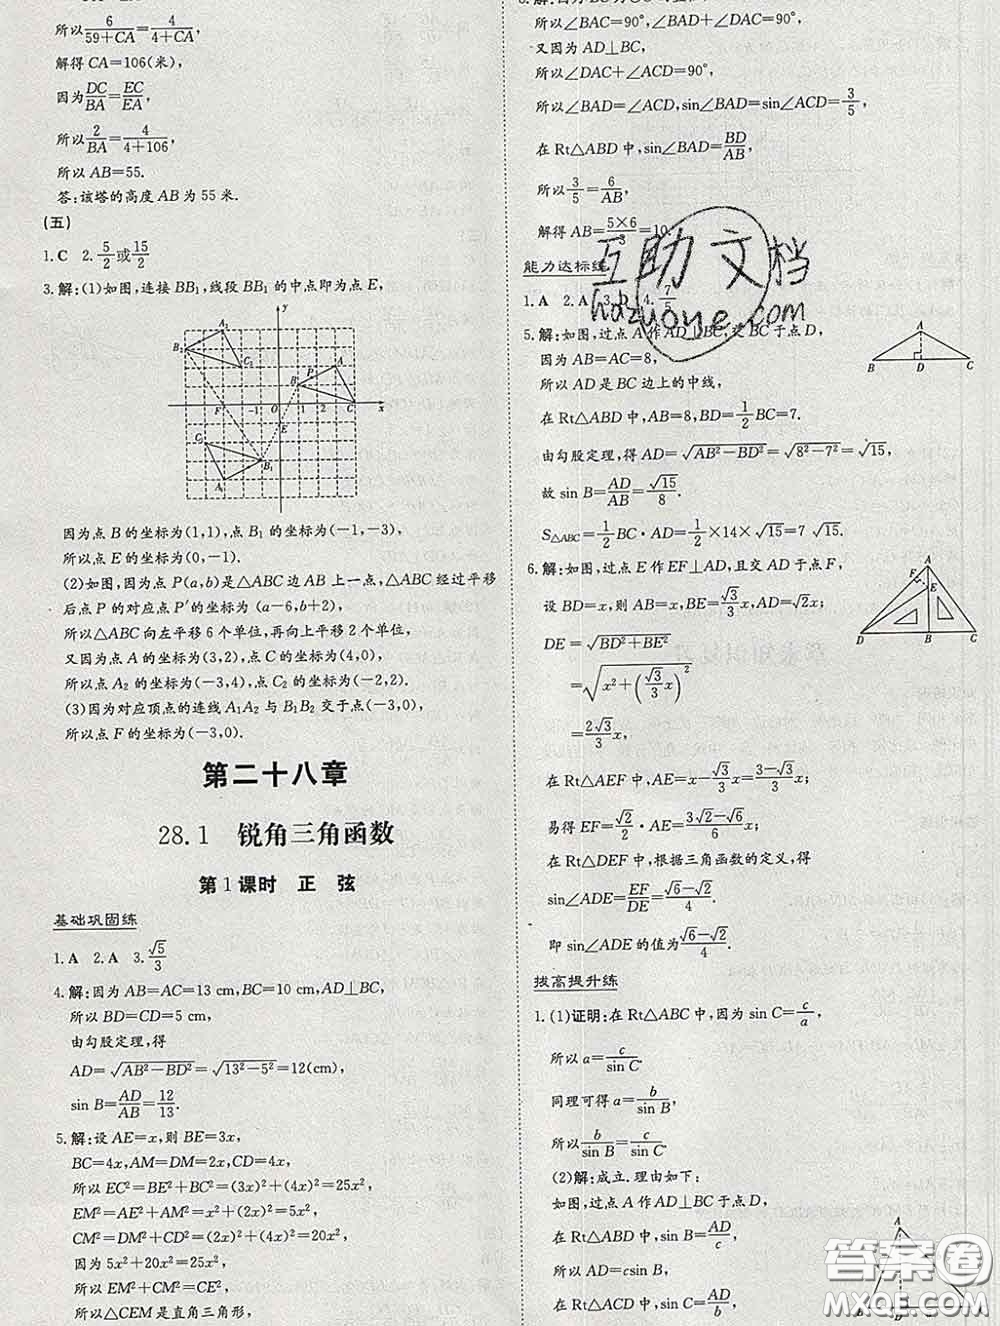 所以6/(59+CA)=4/(4+CA),
解得 CA=106(米),
因为DC/BA=EC/EA,
所以2/BA=4/(4+106),
所以 AB=55.
答:该塔的高度 AB 为 55 米.
(五)
1.C 2.5/2或15/2
3.解:(1)如图,连接 BB₁,线段 BB₁ 的中点即为点 E,
因为点 B 的坐标为(1,1),点 B₁ 的坐标为(-1,-3),
所以点 E 的坐标为(0,-1).
(2)如图,因为点 P(a,b)是△ABC 边 AB 上一点,△ABC 经过平移
后点 P 的对应点 P′的坐标为 (a-6,b+2),
所以△ABC 向左平移 6 个单位,再向上平移 2 个单位,
又因为点 A 的坐标为(3,2),点 C 的坐标为(4,0),
所以点 A₂ 的坐标为(-3,4),点 C₂ 的坐标为(-2,2).
(3)因为对应顶点的连线 A₁A₂ 与 B₁B₂ 交于点(-3,0),
所以点 F 的坐标为(-3,0).
第二十八章
28.1 锐角三角函数
第 1 课时 正 弦
基础巩固练
1.A 2.A 3.√5/3
4.解:因为 AB=AC=13 cm,BC=10 cm,AD⊥BC,
所以 BD=CD=5 cm,
由勾股定理,得
AD=√(AB²-BD²)=√(13²-5²)=12(cm),
sin B=AD/AB=12/13.
5.解:设 AE=x,则 BE=3x,
BC=4x,AM=DM=2x,CD=4x,
所以 EC²=BE²+BC²=(3x)²+(4x)²=25x²,
EM²=AE²+AM²=x²+(2x)²=5x²,
CM²=DM²+CD²=(2x)²+(4x)²=20x²,
因为 5x²+20x²=25x²,
所以 EM²+CM²=CE²,
所以△CEM 是直角三角形,
所以∠BAC=90°,∠BAD+∠DAC=90°,
又因为 AD⊥BC,
所以∠DAC+∠ACD=90°,
所以∠BAD=∠ACD,sin∠BAD=sin∠ACD=3/5,
在 Rt△ABD 中,sin∠BAD=BD/AB,
所以3/5=6/AB,
解得 AB=(5×6)/3=10.
能力达标练
1.A 2.A 3.D 4.7/5
5.解:如图,过点 A 作 AD⊥BC,交 BC 于点 D,
因为 AB=AC=8,
所以 AD 是 BC 边上的中线,
在 Rt△ABD 中,AB=8,BD=1/2BC=7.
由勾股定理,得 AD=√(AB²-BD²)=√(8²-7²)=√15,
故 sin B=AD/AB=√15/8.
S△ABC=1/2BC·AD=1/2×14×√15=7√15.
B D C
6.解:如图,过点 E 作 EF⊥AD,且交 AD 于点 F,
设 BD=x,则 AB=x,BE=√3/3x,AD=√2x;
DE=√(BD²+BE²)
=√(x²+(√3/3x)²)
=2√3/3x,
在 Rt△AEF 中,AE=x-√3/3x=(3-√3)/3x,
易得 EF=√2/2·AE=(3√2-√6)/6x;
在 Rt△DEF 中,根据三角函数的定义,得
sin∠ADE=EF/DE=(√6-√2)/4.
即 sin∠ADE 的值为(√6-√2)/4.
A
F E
D B C
拔高提升练
1.(1)证明:在 Rt△ABC 中,因为 sin C=c/a,
所以 a=c/sin C.
同理可得 a=b/sin B,
所以b/sin B=c/sin C.
(2)解:成立.理由如下:
如图,过点 A 作 AD⊥BC 于点 D,
在 Rt△ABD 中,sin B=AD/c,
所以 AD=csin B,
在 Rt△ACD 中,sin C=AD/b,
互助文档
hdzuoye.com
答案圈
MXQE.COM